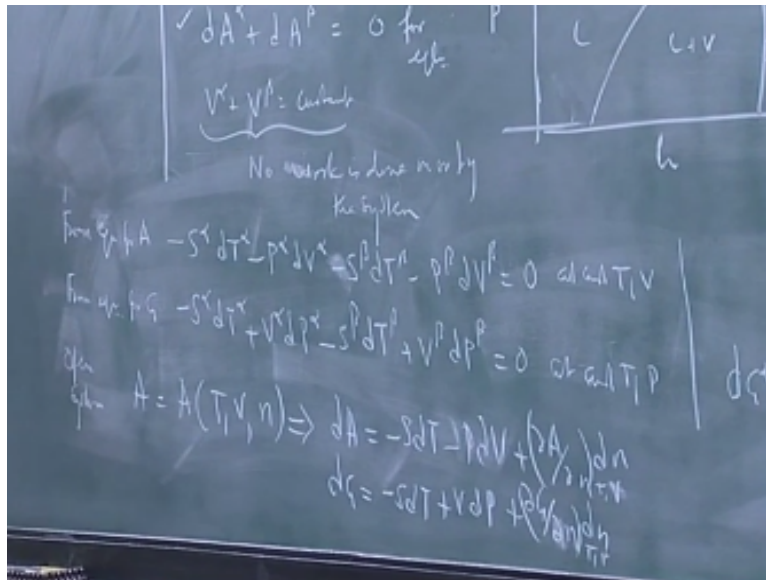 ✓ dA^α + dA^β = 0 for
eqb.
P
L
L+V
h
V^α + V^β = Constant
No work is done on or by
the system
From eqn for A -S^α dT^α - P^α dV^α - S^β dT^β - P^β dV^β = 0 at const T, V
From eqn for G -S^α dT^α + V^α dP^α - S^β dT^β + V^β dP^β = 0 at const T, P
dG^α
open
system A = A(T, V, n) ⇒ dA = -SdT - PdV + (∂A/∂n)_{T,V} dn
dG = -SdT + VdP + (∂G/∂n)_{T,P} dn